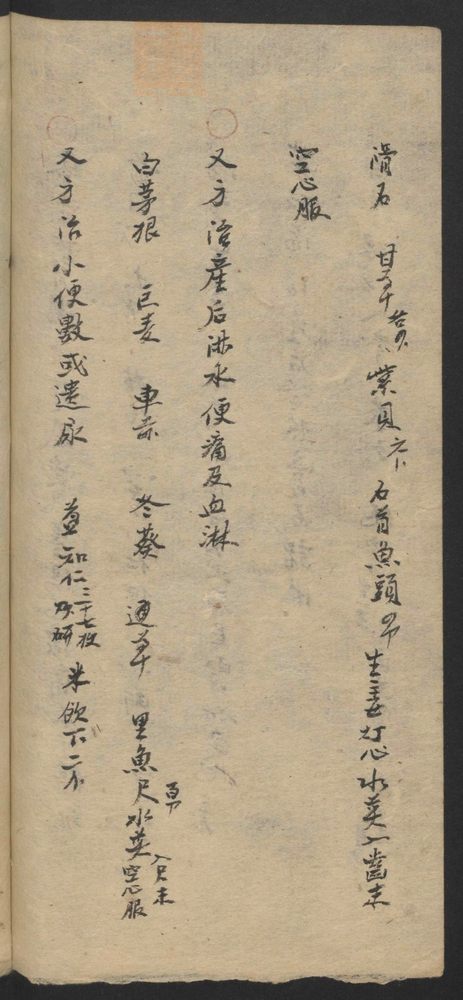 滑石 甘草 紫貝 石首魚頭 生姜灯心水英入齒末
空心服
又方治產后淋水便痛及血淋
白茅根 巨麦 車前 冬葵 通草 里魚尺水英入尺末空心服
又方治小便數或遺尿 益知仁二十七枚研 米飲下二